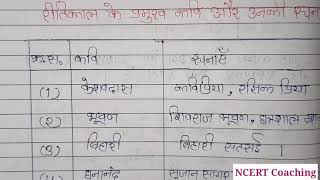 रीतिकाल के प्रमुख कवि और उनकी रचना
क्र.सं. कवि रचनाएँ
(1) केशवदास कविप्रिया, रसिक प्रिया
(2) भूषण शिवराज भूषण, छत्रसाल
(3) बिहारी बिहारी सतसई ।
घनानंद सुजान सागर
NCERT Coaching